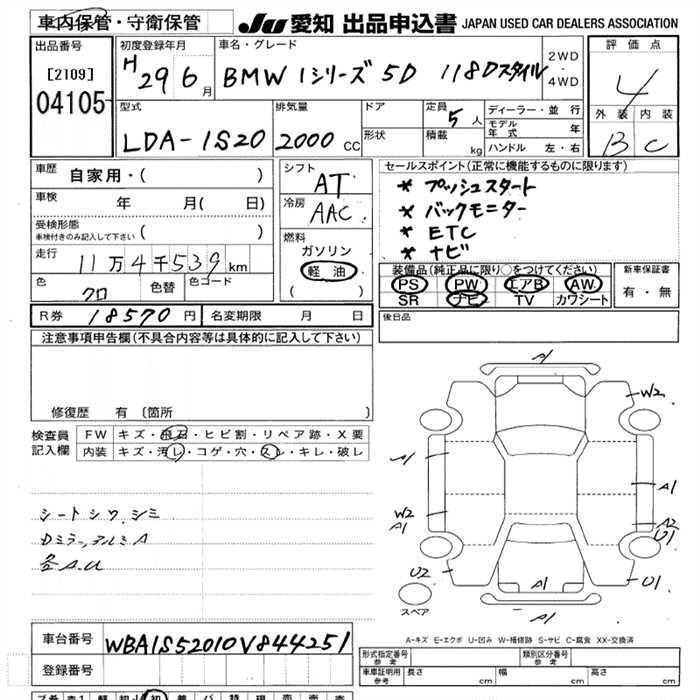 車内保管・守衛保管
JU 愛知 出品申込書 JAPAN USED CAR DEALERS ASSOCIATION
出品番号
[2109]
04105
初度登録年月
H 29 6月
車名・グレード
BMW 1シリーズ 5D 118Dスタイル
2WD
・
4WD
評価点
4
外装 内装
B C
型式
LDA-1S20
排気量
2000 CC
ドア
形状
定員
5人
積載
kg
ディーラー・並行
モデル年式 年
ハンドル 左・右
車歴
自家用・( )
車検
年 月( 日)
受検形態
車検付きのみ記入して下さい ( )
走行
11万4千539km
色
クロ
色替
色コード
シフト
AT
冷房
AAC
燃料
ガソリン
軽油
( )
セールスポイント(正常に機能するものに限ります)
* プッシュスタート
* バックモニター
* ETC
* ナビ
装備品(純正品に限り○をつけてください)
PS PW エアB AW
SR ナビ TV カワシート
新車保証書
有・無
R券 18570円 名変期限 月 日
後日品
注意事項申告欄(不具合内容等は具体的に記入して下さい)
修復歴 有〔箇所 〕
検査員
記入欄
FW キズ・飛石・ヒビ割・リペア跡・X要
内装 キズ・汚レ・コゲ・穴・スレ・キレ・破レ
シートシワ、シミ
Dミラー、アルミA
各A.U
A1
W2
A1
A1
W2
A1
A2
U1
U2
A1
U1
A1
スペア
A-キズ E-エクボ U-凹み W-補修跡 S-サビ C-腐食 XX-交換済
車台番号 WBA1S52010V844251
登録番号
形式指定番号
参考
類別区分番号
参考
車庫証明用
参考
長さ cm 幅 cm 高さ cm